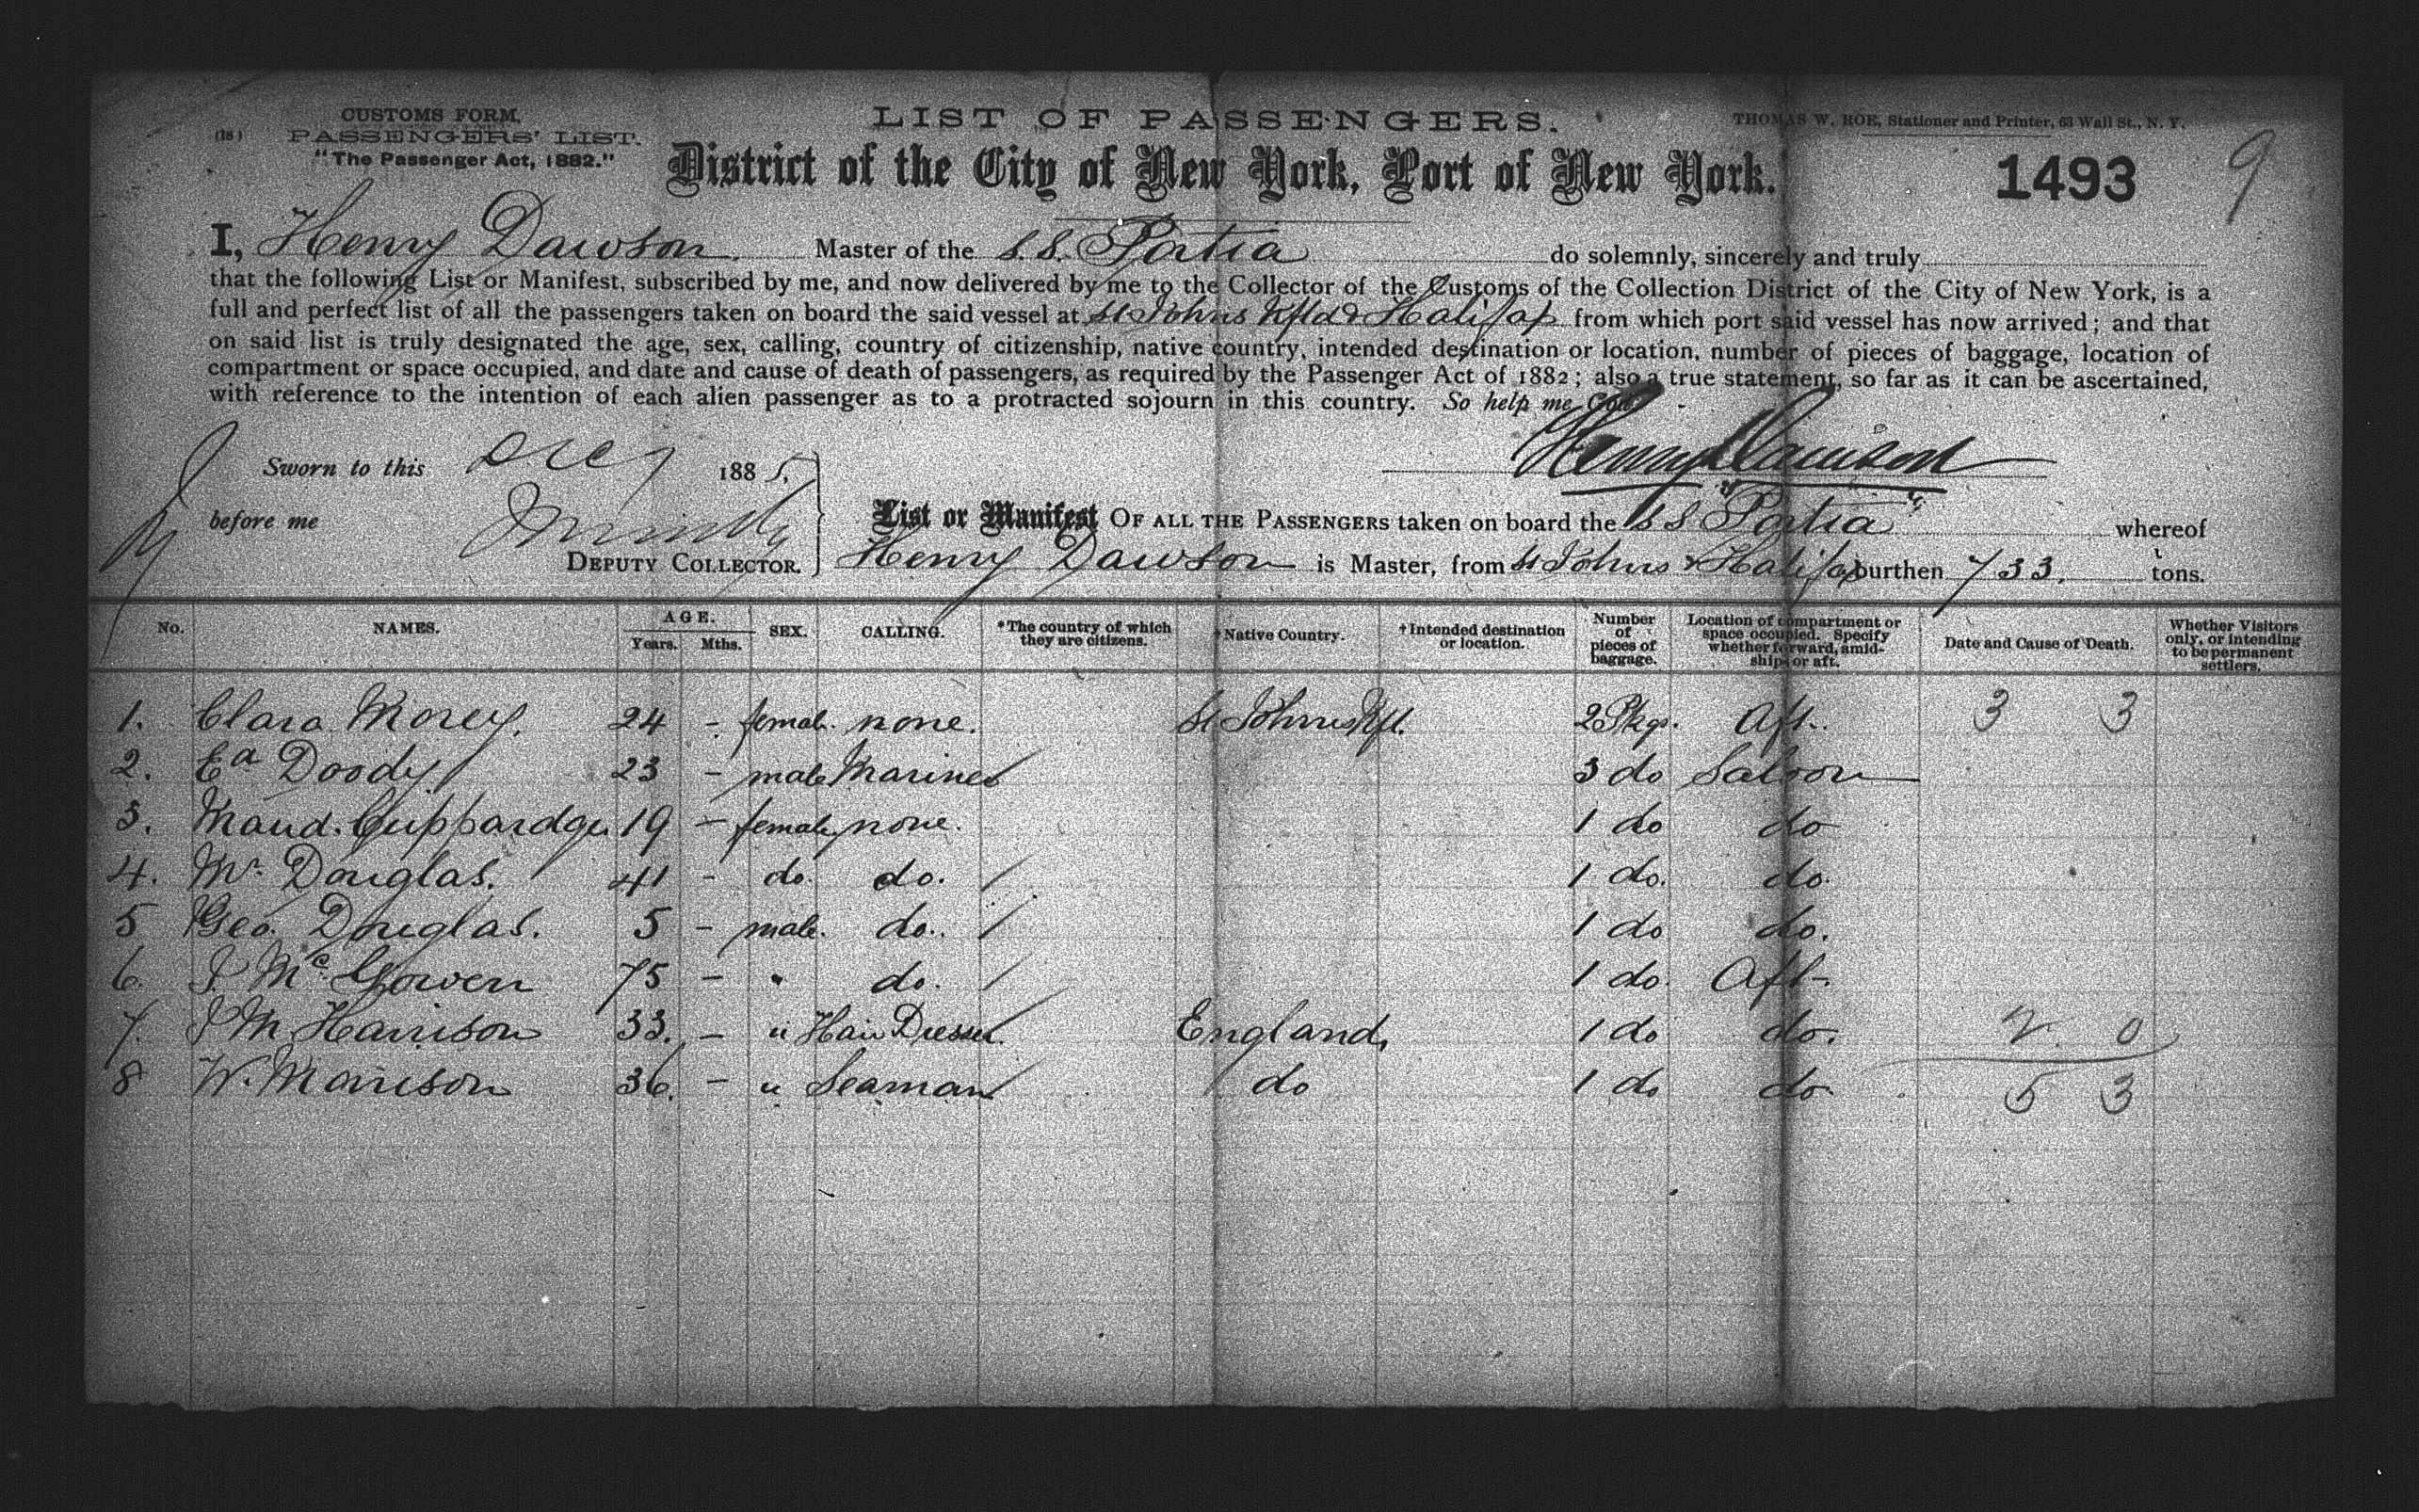 CUSTOMS FORM.
(18)
PASSENGERS' LIST.
"The Passenger Act, 1882."
LIST OF PASSENGERS.
THOMAS W. ROE, Stationer and Printer, 63 Wall St., N. Y.
District of the City of New York, Port of New York.
1493
9
I, Henry Dawson. Master of the S.S. Portia do solemnly, sincerely and truly
that the following List or Manifest, subscribed by me, and now delivered by me to the Collector of the Customs of the Collection District of the City of New York, is a
full and perfect list of all the passengers taken on board the said vessel at St Johns Nfld & Halifax from which port said vessel has now arrived; and that
on said list is truly designated the age, sex, calling, country of citizenship, native country, intended destination or location, number of pieces of baggage, location of
compartment or space occupied, and date and cause of death of passengers, as required by the Passenger Act of 1882; also a true statement, so far as it can be ascertained,
with reference to the intention of each alien passenger as to a protracted sojourn in this country. So help me God.
Henry Dawson
Sworn to this Dec 7 1885,
before me
DEPUTY COLLECTOR.
List or Manifest OF ALL THE PASSENGERS taken on board the S S "Portia" whereof
Henry Dawson is Master, from St Johns & Halifax burthen 733. tons.
No. NAMES. AGE. Years. Mths. SEX. CALLING. *The country of which they are citizens. †Native Country. †Intended destination or location. Number of pieces of baggage. Location of compartment or space occupied. Specify whether forward, amidships or aft. Date and Cause of Death. Whether Visitors only, or intending to be permanent settlers.
1. Clara Morey. 24 - female. none. St Johns Nfl. 2 Pkgs. Aft. 3 3
2. Ed Doody 23 - male Mariner 3 do Saloon
3. Maud. 19 - female, none. 1 do do
4. Mrs Douglas. 41 - do. do. 1 do. do.
5 Geo. Douglas. 5 - male. do. 1 do do.
6. J. McGowen 75 - " do. 1 do. Aft-
7. J M Harrison 33. - " Hair Dresser. England, 1 do do. 2. 0
8 W. Morrison 36. - " Seaman do 1 do do. 5 3